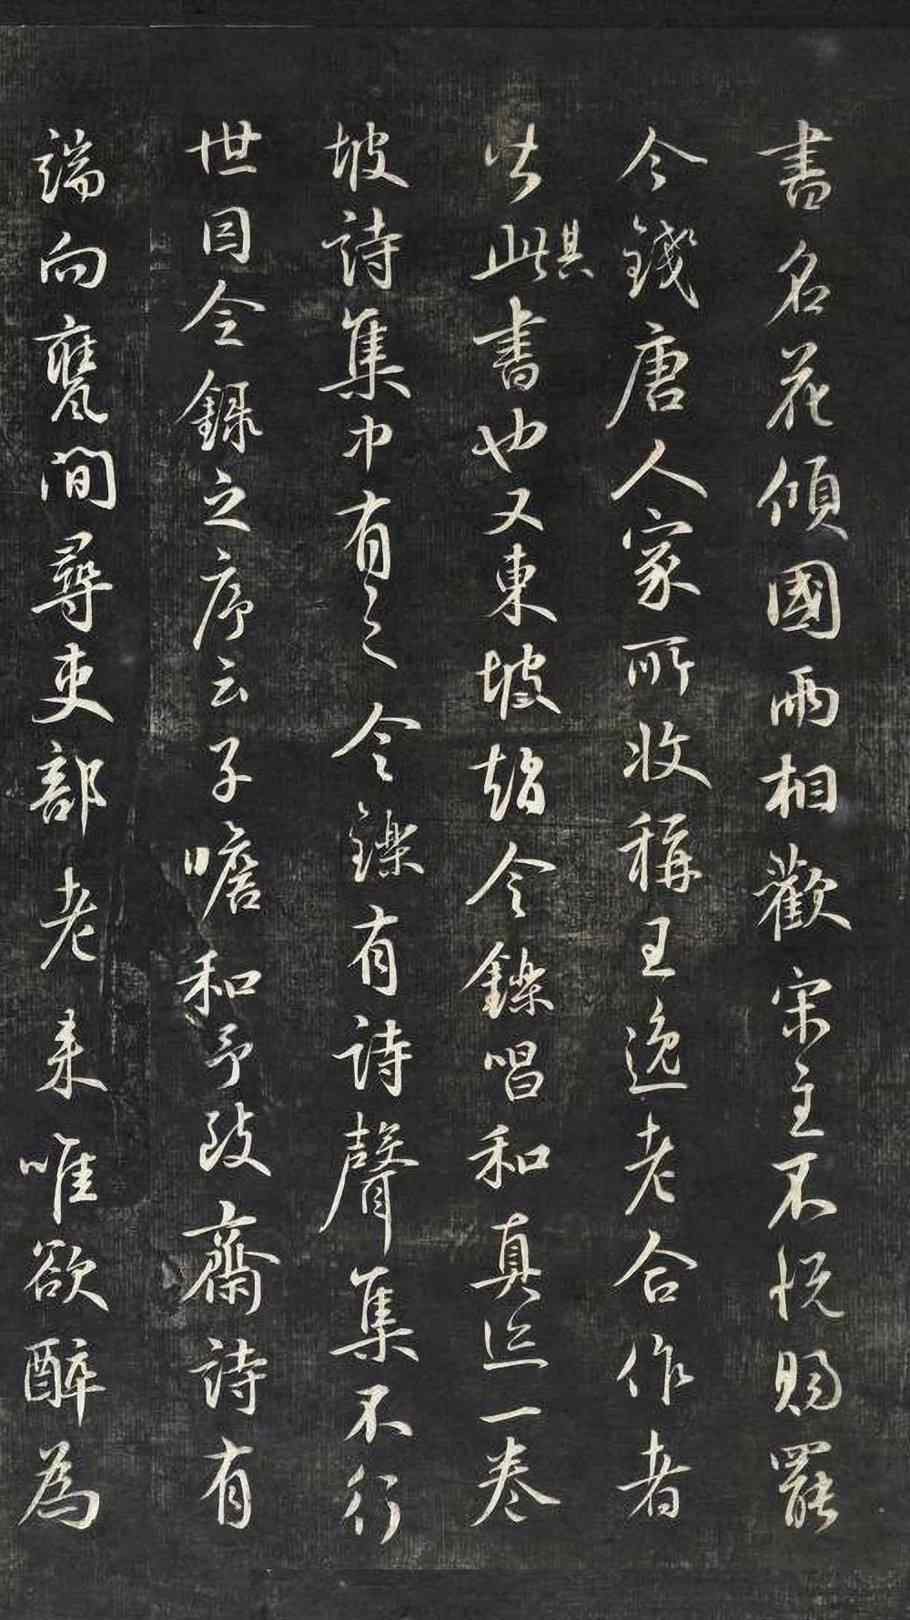 書名花傾國兩相歡宋主不悅賜罷
今錢唐人家所收稱王逸老合作者
皆此其書也又東坡趙令鑠唱和真迹一卷
坡詩集中有之令鑠有詩聲集不行
世因令錄之序云子瞻和予致齋詩有
端向甕間尋吏部老來唯欲醉為